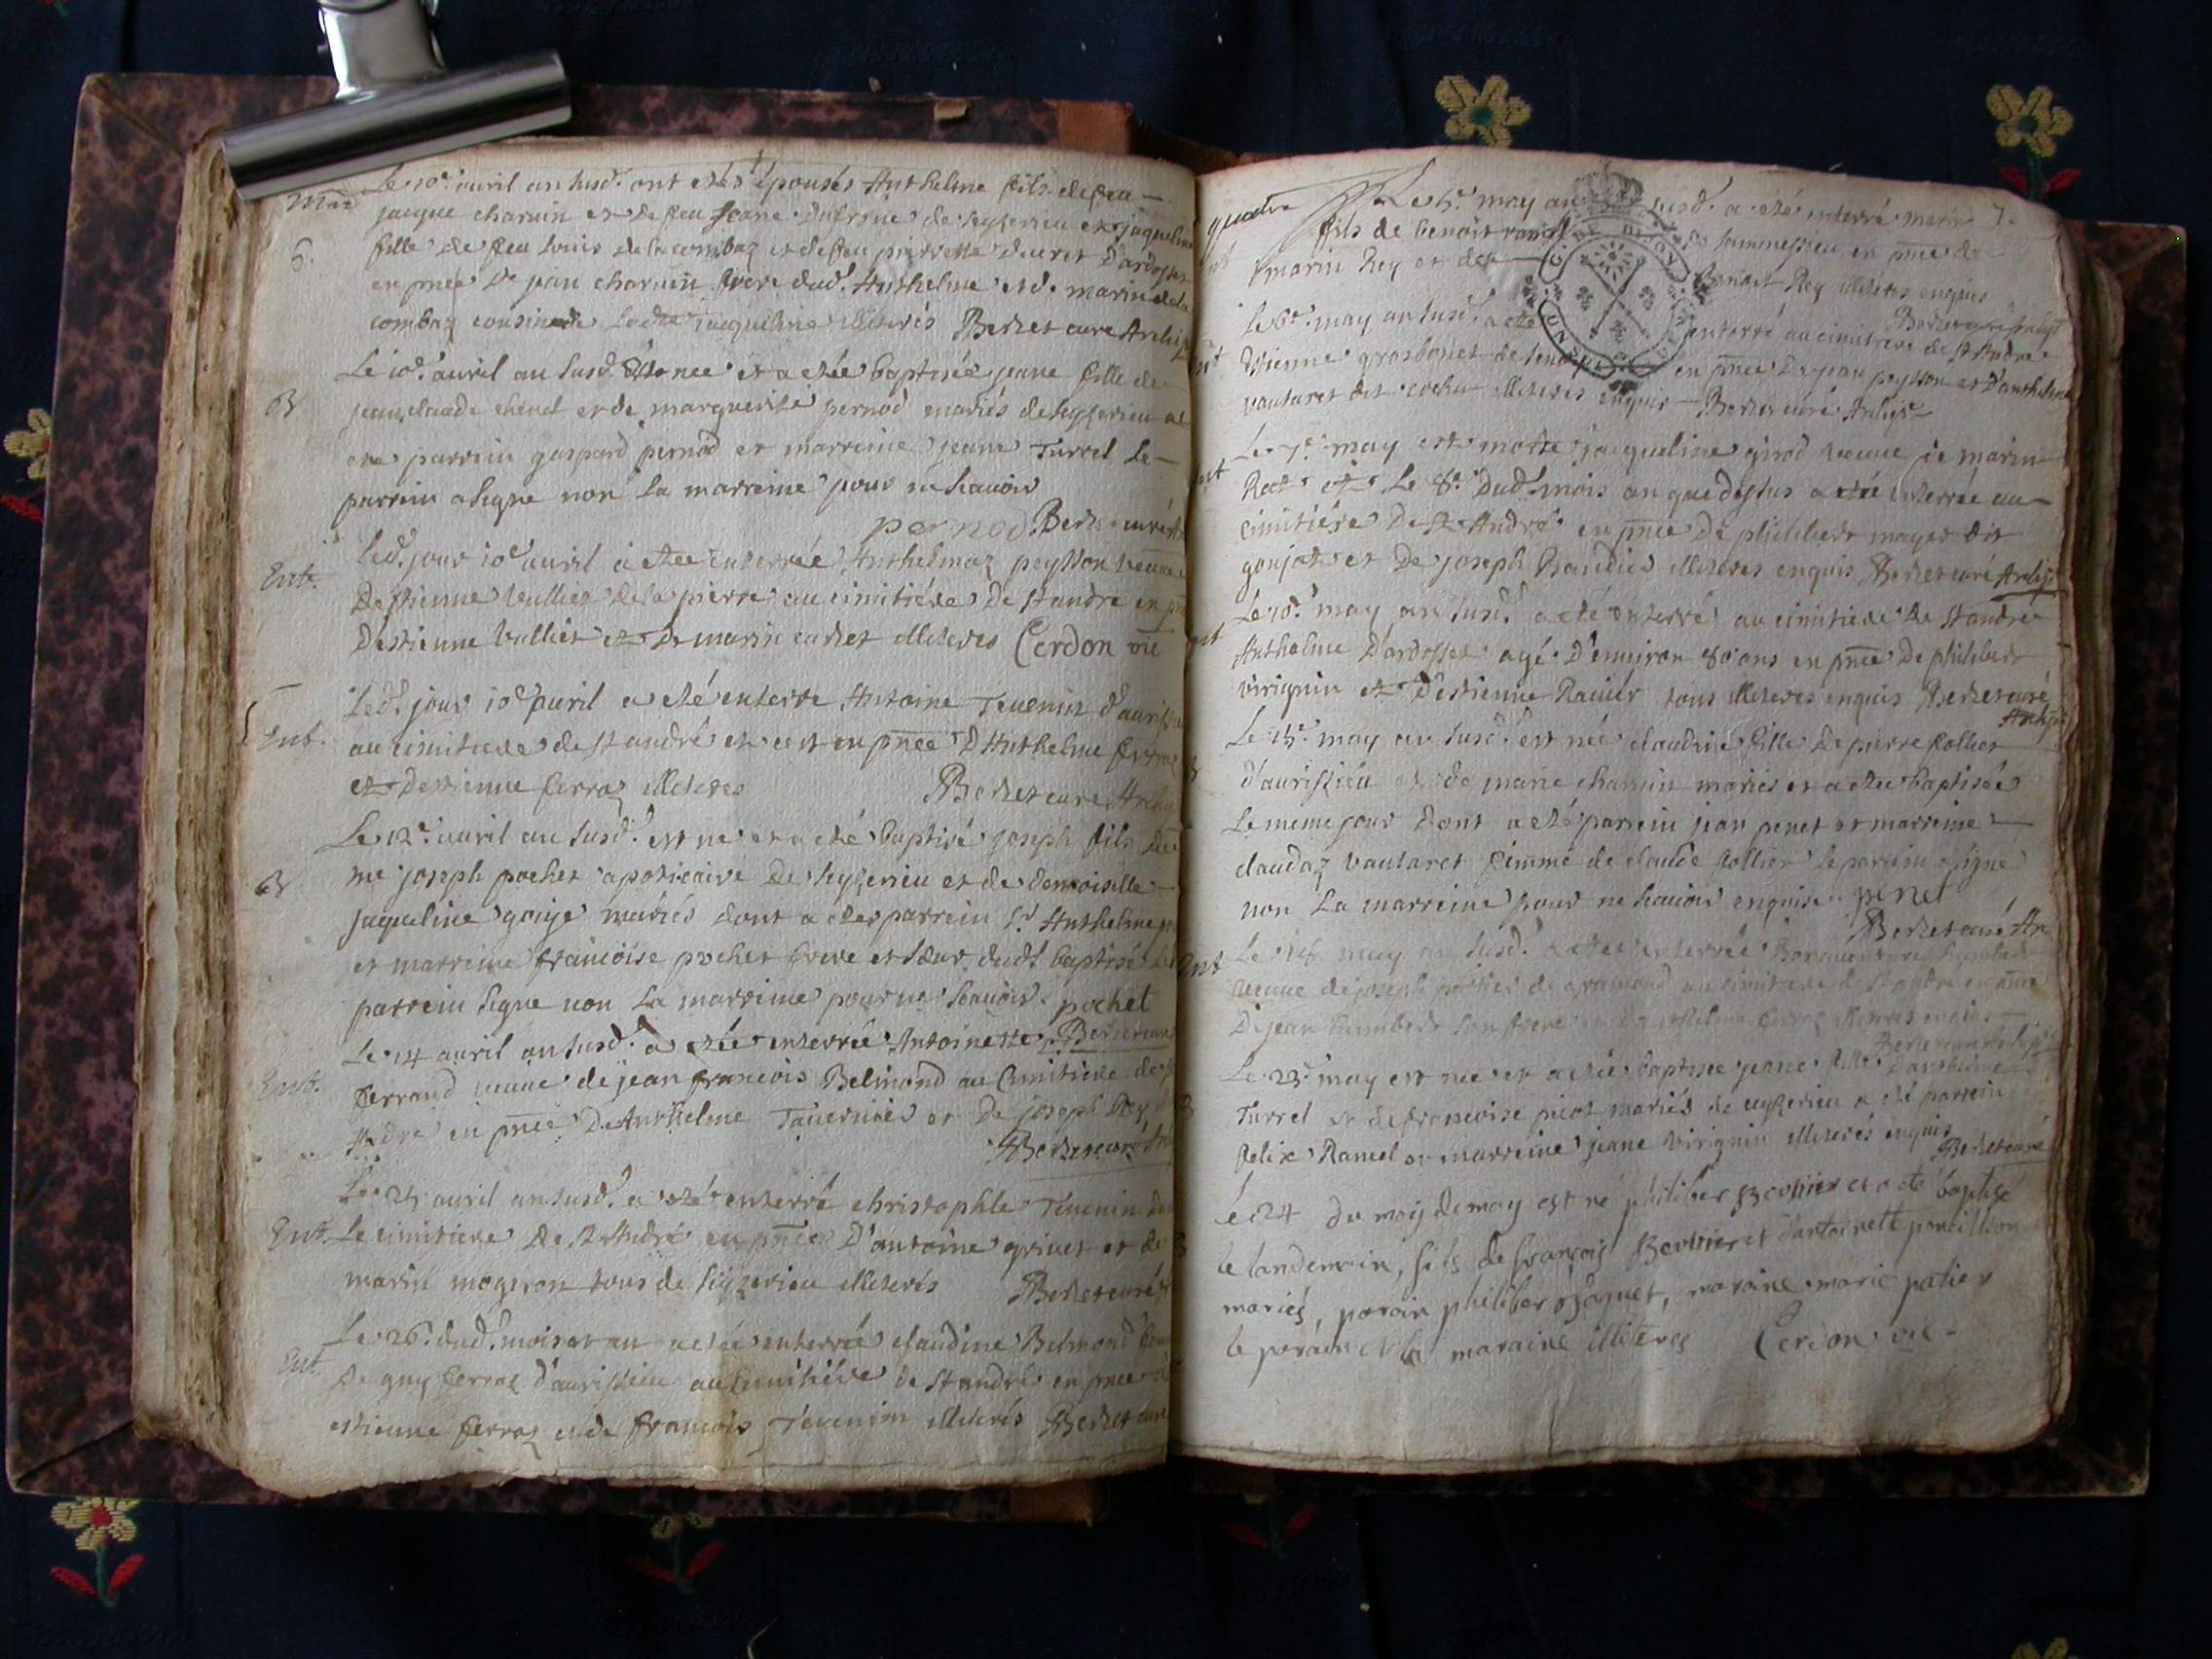 Mar
Le 10e. auril an susd. ont etés épousés Anthelme fils de feu
jacque charuin et de feu jeane dufrene de seyserieu et jaqueline
6.
fille de feu louis de la combaz et de feu pierrette ducret d'ardosset
en pnce De jean charuin frere dud. Anthelme et d. marin de la
combaz cousin de ladte jacqueline illiterés Berlet curé Archip
B
Le 10e. auril an susd. est nee et a etée baptisée jeane fille de
jean claude chenel et de marguerite pernod mariés de seyserieu a
ete parrein gaspard pernod et marreine jeane Turrel le
parrein a signe non la marreine pour ne scauoir
pernod Berlet curé
Ent.
led. jour 10e auril a etée enterrée Anthelmaz peysson veuue
D'estienne Vulliet de la pierre au cimitiére De st andré en pnce
D'estienne Vulliet et De marin cullet illiteres Cerdon vic
Ent.
Led. jour 10e auril a eté enterre Antoine Teuenin d'aurissieu
au cimitiere de st andré et cest en pnce D'Anthelme ferraz
et D'estienne ferraz illiteres Berlet curé Archip
B
Le 12e. auril an susd. est ne et a eté baptisé joseph fils de
me joseph pochet apoticaire De seyserieu et de demoiselle
jaqueline gouje mariés dont a ete parrein Sr. Anthelme
et marreine francoise pochet frere et sœur dudt baptisé le
parrein signe non la marreine pour ne scauoir. pochet
Berlet curé
Ent.
Le 14 auril an susd. a etée enterrée Antoinette
ferrand veuue de jean francois Belmond au Cimitiere de st
Andre en pnce D'Anthelme Tauernier et De joseph Rey
Berlet curé
Ent.
Le 25 auril an susd. a eté enterré christophle Teuenin dans
le cimitiere De St André en pnce D'antoine griuet et de
marin mogeron tous de seyserieu illiterés Berlet curé
Ent.
Le 26. dud. mois et an a etée enterrée claudine Belmond
De guy ferraz d'aurissieu au cimitiére de St andré en pnce
estienne ferraz et de francois Teuenin illiterés Berlet curé
quatre
7.
Le 5e. may an susd. a eté enterré marin
fils de benoit ramel De sammessieu en pnce de
marin Rey et de Benoit Rey illiteres enquis
Berlet curé Archip
Le 6e. may an susd. a ete enterré au cimitiere de St Andre
Estienne grosbonet de en pnce De jean peysson et D'anthelme
vautaret dit cochet illiteres enquis Berlet curé Archip
Ent
Le 7e. may est morte jacqueline girod veuue de marin
et Le 8e. Dud. mois an que dessus a eté enterrée au
cimitiére De St André en pnce De philibert mayet dit
goujat et De joseph illiteres enquis Berlet curé Archip
Ent
Le 10e. may an susd. a eté enterré au cimitiere de St andré
Anthelme D'ardosset agé D'enuiron 80 ans en pnce De philibert
virignin et D'estienne Rauier tous illiteres enquis Berlet curé
Archip
B
Le 13e. may an susd. est née claudine fille De pierre follier
d'aurissieu et de marie charuin mariés et a etee baptisée
Le meme jour dont a eté parrein jean penet et marreine
claudaz vautaret femme de claude follier le parrein a signé
non La marreine pour ne scauoir enquise. penet
Berlet curé Ar
Ent
may an susd. a etee enterrée Bonauenture humbert
veuue de joseph de au cimitiere de St andre en pnce
De jean humbert son frere et D'anthelme ferraz illiteres enquis
Berlet curé Archip
B
Le 23e. may est nee et a eté baptisee jeane fille D'anthelme
Turrel et de francoise picot mariés de ceyserieu a eté parrein
felix Ramel et marreine jeane virignin illiterés enquis
Berlet curé
B
le 24 du mois de may est né philiber et a été baptisé
le landemain, fils de françois et d'antoinette
mariés, parain philiber jaquet, maraine marie patier
le perain et la maraine illiteres Cerdon vic